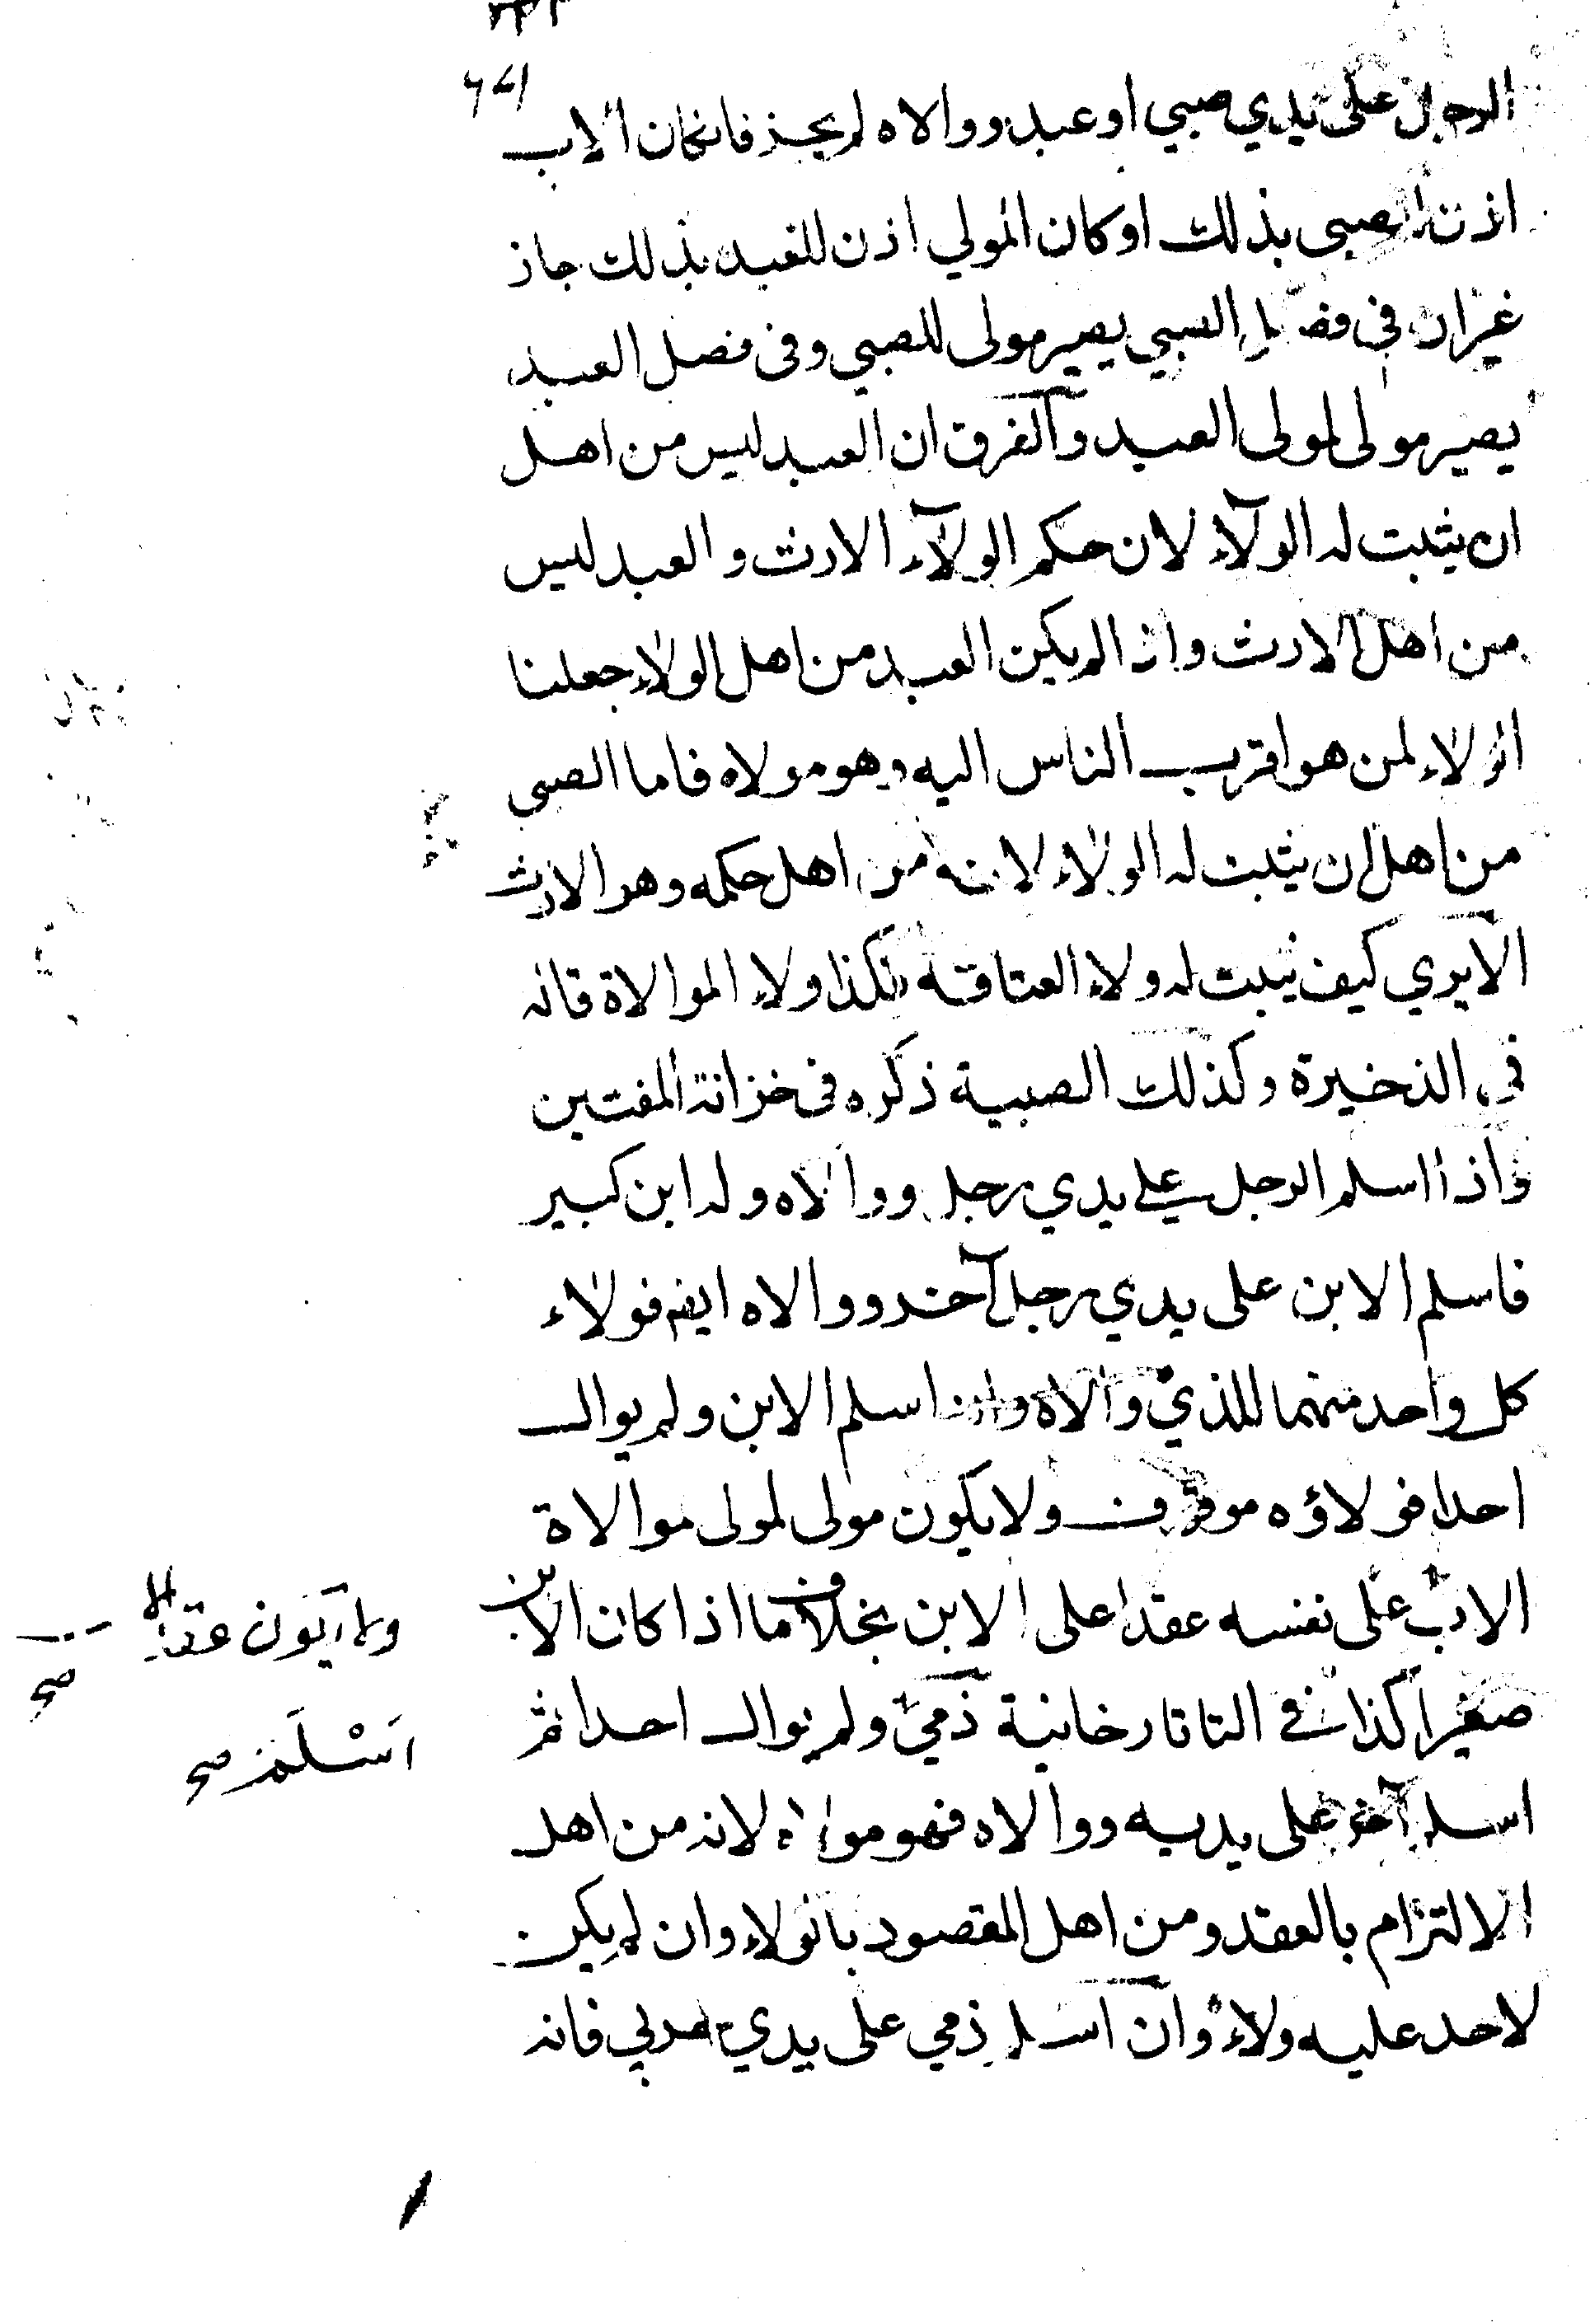 الرجل على يدي صبي او عبد ووالاه لم يجز فان كان الاب
اذن للصبي بذلك او كان المولي اذن للعبد بذلك جاز
غير ان في فصل الصبي يصير مولى للصبي وفى فصل العبد
يصير مولى لمولى العبد والفرق ان العبد ليس من اهل
ان يثبت له الولاء لان حكم الولاء الارث والعبد ليس
من اهل الارث واذا لم يكن العبد من اهل الولاء جعلنا
الولاء لمن هو اقرب الناس اليه وهو مولاه فاما الصبى
من اهل ان يثبت له الولاء لانه من اهل حكمه وهو الارث
الا يري كيف يثبت له ولاء العتاقة فكذا ولاء الموالاة قاله
في الذخيرة وكذلك الصبية ذكره فى خزانة المفتين
واذا اسلم الرجل على يدي رجل ووالاه وله ابن كبير
فاسلم الابن على يدي رجل آخر ووالاه ايضا فولاء
كل واحد منهما للذي والاه وان اسلم الابن ولم يوال
احدا فولاؤه موقوف ولا يكون مولى لمولى موالاة
الاب على نفسه عقدا على الابن بخلاف ما اذا كان الابن
ولا يكون عقد الا
صح
صغيرا كذا في التاتارخانية ذمي ولم يوال احدا ثم
اسلم صح
اسلم آخر على يديه ووالاه فهو مولاه لانه من اهل
الالتزام بالعقد ومن اهل المقصود بالولاء وان لم يكن
لاحد عليه ولاء وان اسلم ذمي على يدي حربي فانه